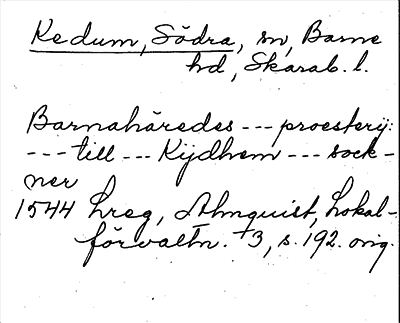 Kedum, Södra, sn, Barne
hd, Skarab. l.
Barnahäredes --- proesterij:
--- till --- Kijdhem --- sock-
ner
1544 hreg, Almquist, Lokal-
förvaltn. +3, s. 192. orig.